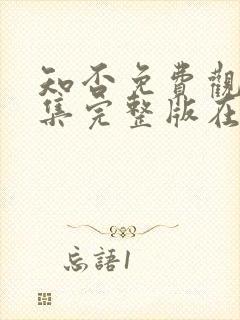 知否免費觀
集完整版在
忘語1